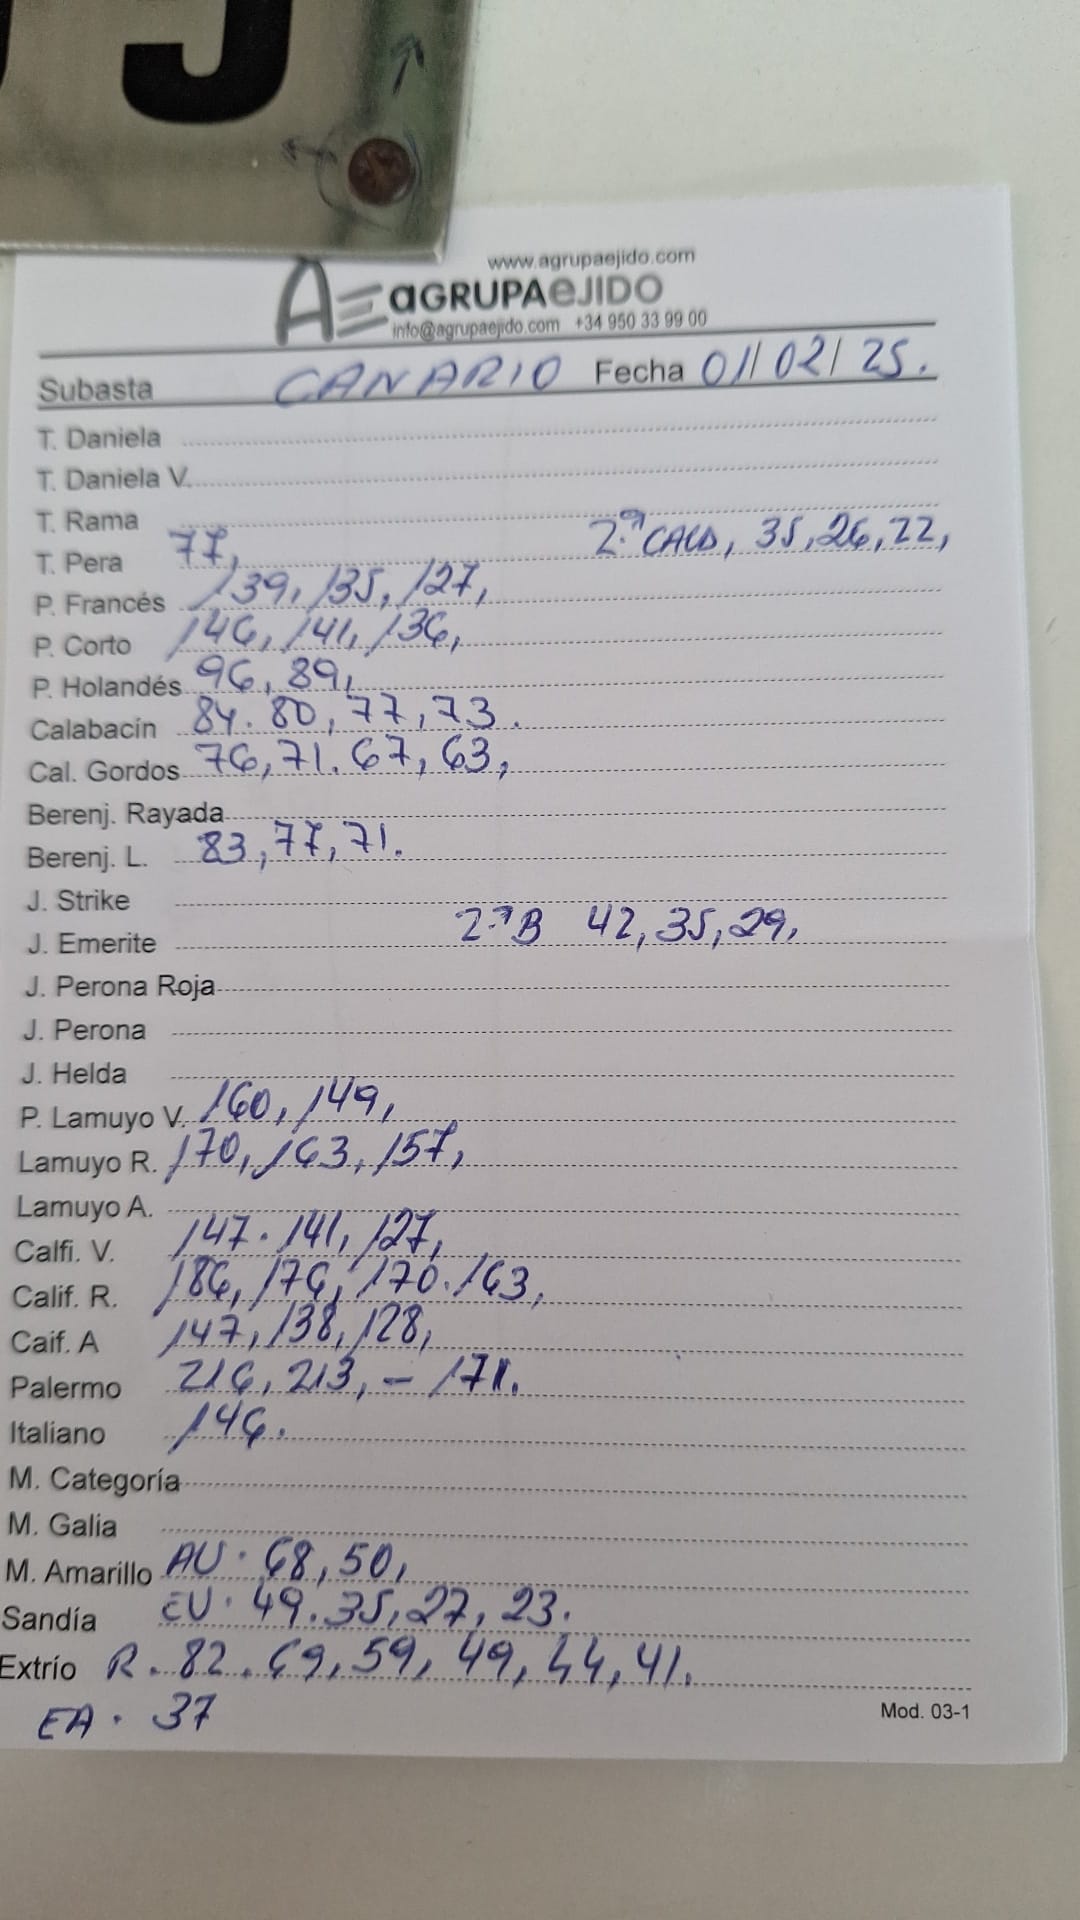 5
www.agrupaejido.com
AE aGRUPAeJIDO
info@agrupaejido.com +34 950 33 99 00
Subasta CANARIO Fecha 01/02/25.
T. Daniela
T. Daniela V.
T. Rama
T. Pera 77, 2.ª CALD, 35, 26, 22,
P. Francés 139, 135, 127,
P. Corto 146, 141, 136,
P. Holandés 96, 89,
Calabacín 84. 80, 77, 73.
Cal. Gordos 76, 71. 67, 63,
Berenj. Rayada
Berenj. L. 83, 77, 71.
J. Strike
J. Emerite 2.ª B 42, 35, 29,
J. Perona Roja
J. Perona
J. Helda
P. Lamuyo V. 160, 149,
Lamuyo R. 170, 163, 157,
Lamuyo A.
Calfi. V. 147. 141, 127,
Calif. R. 186, 176, 170. 163,
Caif. A 147, 138, 128,
Palermo 216, 213, - 171.
Italiano 146.
M. Categoría
M. Galia
M. Amarillo AU. 68, 50,
Sandía EU. 49. 35, 27, 23.
Extrío R. 82. 69, 59, 49, 44, 41.
EA. 37
Mod. 03-1